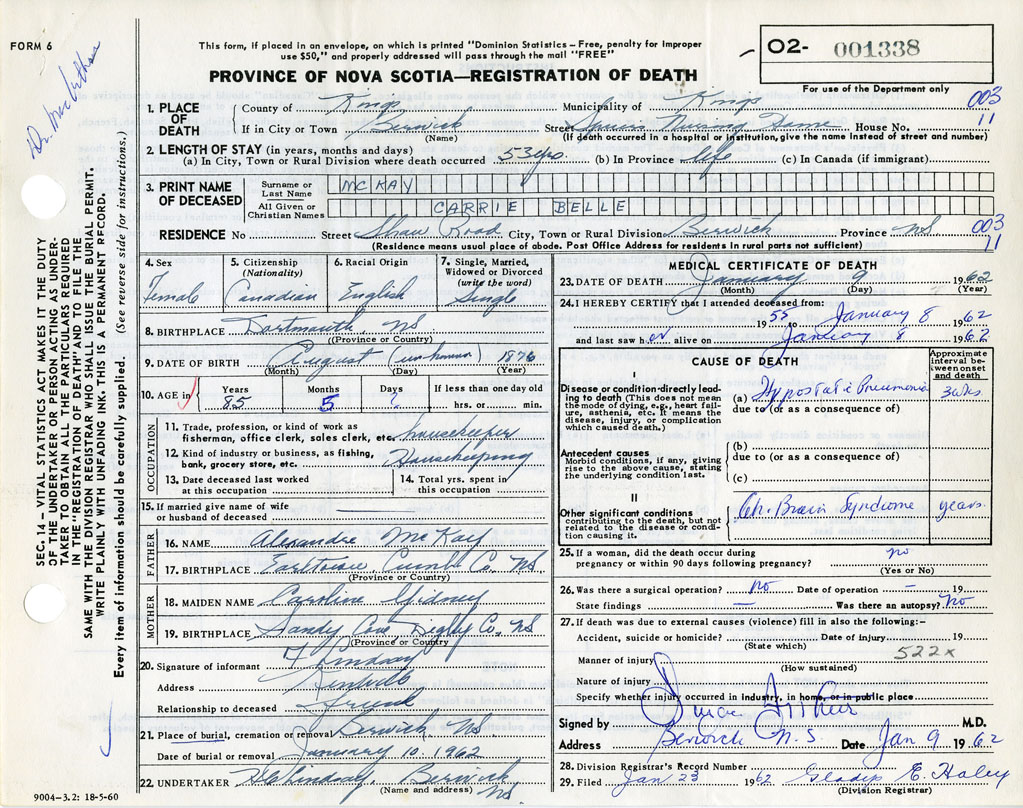 FORM 6
Dr.
This form, if placed in an envelope, on which is printed "Dominion Statistics – Free, penalty for improper
use $50," and properly addressed will pass through the mail "FREE"
PROVINCE OF NOVA SCOTIA—REGISTRATION OF DEATH
O2- 001338
For use of the Department only
003
11
1. PLACE OF DEATH
County of Kings Municipality of Kings
If in City or Town Berwick Street Nursing Home House No.
(Name) (If death occurred in a hospital or institution, give the name instead of street and number)
2. LENGTH OF STAY (in years, months and days)
(a) In City, Town or Rural Division where death occurred 53 yrs (b) In Province life (c) In Canada (if immigrant)
3. PRINT NAME OF DECEASED
Surname or Last Name MCKAY
All Given or Christian Names CARRIE BELLE
RESIDENCE No Street Shaw Road City, Town or Rural Division Berwick Province NS
003
11
(Residence means usual place of abode. Post Office Address for residents in rural parts not sufficient)
4. Sex
Female
5. Citizenship
(Nationality)
Canadian
6. Racial Origin
English
7. Single, Married,
Widowed or Divorced
(write the word)
Single
8. BIRTHPLACE Dartmouth, NS
(Province or Country)
9. DATE OF BIRTH August (unknown) 1876
(Month) (Day) (Year)
10. AGE in
Years Months Days If less than one day old
85 5 ? hrs. or min.
OCCUPATION
11. Trade, profession, or kind of work as
fisherman, office clerk, sales clerk, etc. housekeeper
12. Kind of industry or business, as fishing,
bank, grocery store, etc. Housekeeping
13. Date deceased last worked
at this occupation
14. Total yrs. spent in
this occupation
15. If married give name of wife
or husband of deceased —
FATHER
16. NAME Alexandre McKay
17. BIRTHPLACE Cumb Co. NS
(Province or Country)
MOTHER
18. MAIDEN NAME Caroline Gidney
19. BIRTHPLACE Sandy Cove Digby Co. NS
(Province or Country)
20. Signature of informant Lindsay
Address Kentville
Relationship to deceased friend
21. Place of burial, cremation or removal Berwick NS
Date of burial or removal January 10. 1962
22. UNDERTAKER Lindsay, Berwick NS
(Name and address)
MEDICAL CERTIFICATE OF DEATH
23. DATE OF DEATH January 9 1962
(Month) (Day) (Year)
24. I HEREBY CERTIFY that I attended deceased from:
1955 to January 8 1962
and last saw her alive on January 8 1962
CAUSE OF DEATH
Approximate
interval be-
tween onset
and death
I
Disease or condition directly lead-
ing to death (This does not mean
the mode of dying, e.g., heart fail-
ure, asthenia, etc. It means the
disease, injury, or complication
which caused death.)
(a) Hypostatic Pneumonia 3 wks.
due to (or as a consequence of)
Antecedent causes
Morbid conditions, if any, giving
rise to the above cause, stating
the underlying condition last.
(b)
due to (or as a consequence of)
(c)
II
Other significant conditions
contributing to the death, but not
related to the disease or condi-
tion causing it.
Ch. Brain Syndrome years
25. If a woman, did the death occur during
pregnancy or within 90 days following pregnancy? no
(Yes or No)
26. Was there a surgical operation? no Date of operation – 19
State findings — Was there an autopsy? no
27. If death was due to external causes (violence) fill in also the following:-
Accident, suicide or homicide? Date of injury 19
(State which)
522x
Manner of injury
(How sustained)
Nature of injury
Specify whether injury occurred in industry, in home, or in public place
Signed by M.D.
Address Berwick N.S. Date Jan 9 1962
28. Division Registrar's Record Number
29. Filed Jan 23 1962 Gladys E. Haley
(Division Registrar)
SEC. 14 – VITAL STATISTICS ACT MAKES IT THE DUTY
OF THE UNDERTAKER OR PERSON ACTING AS UNDER-
TAKER TO OBTAIN ALL THE PARTICULARS REQUIRED
IN THE "REGISTRATION OF DEATH" AND TO FILE THE
SAME WITH THE DIVISION REGISTRAR WHO SHALL ISSUE THE BURIAL PERMIT.
WRITE PLAINLY WITH UNFADING INK. THIS IS A PERMANENT RECORD.
Every item of information should be carefully supplied. (See reverse side for instructions.)
9004–3.2: 18-5-60